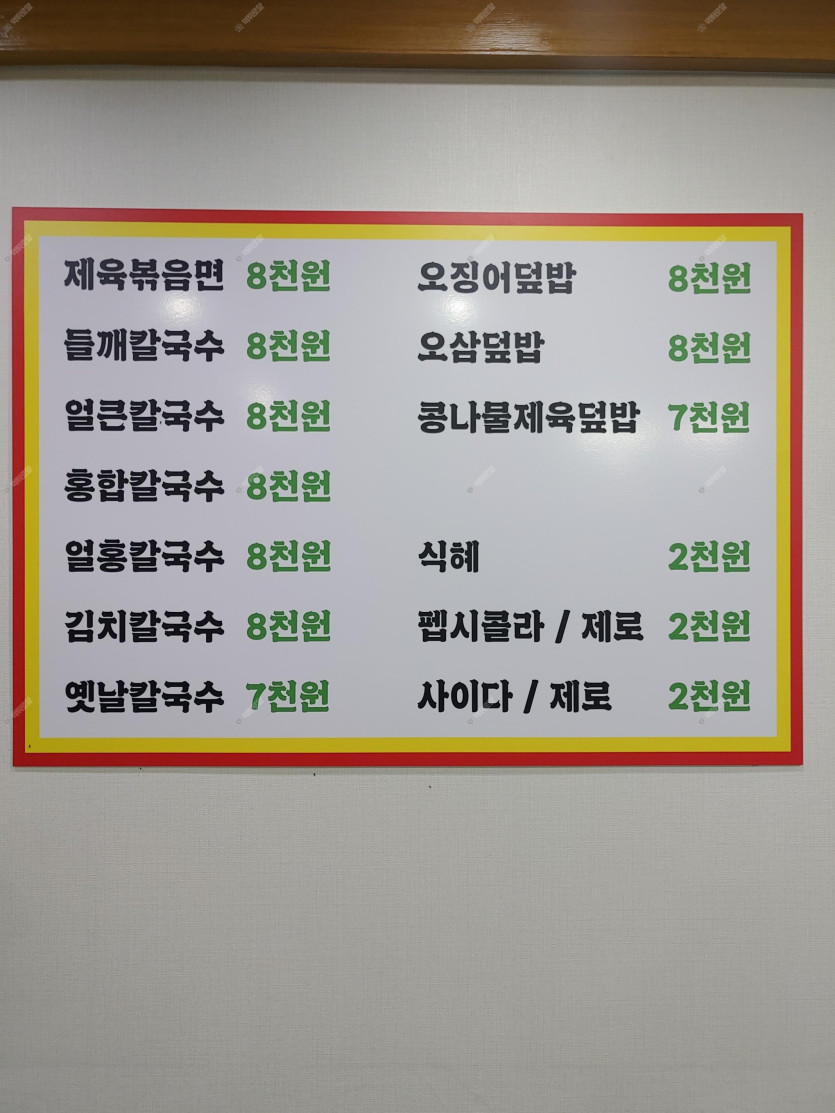 제육볶음면 8천원
들깨칼국수 8천원
얼큰칼국수 8천원
홍합칼국수 8천원
얼홍칼국수 8천원
김치칼국수 8천원
옛날칼국수 7천원
오징어덮밥 8천원
오삼덮밥 8천원
콩나물제육덮밥 7천원
식혜 2천원
펩시콜라 / 제로 2천원
사이다 / 제로 2천원